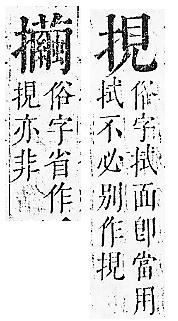 挸
俗字拭面卽當用
拭不必別作挸
俗字省作
挸亦非